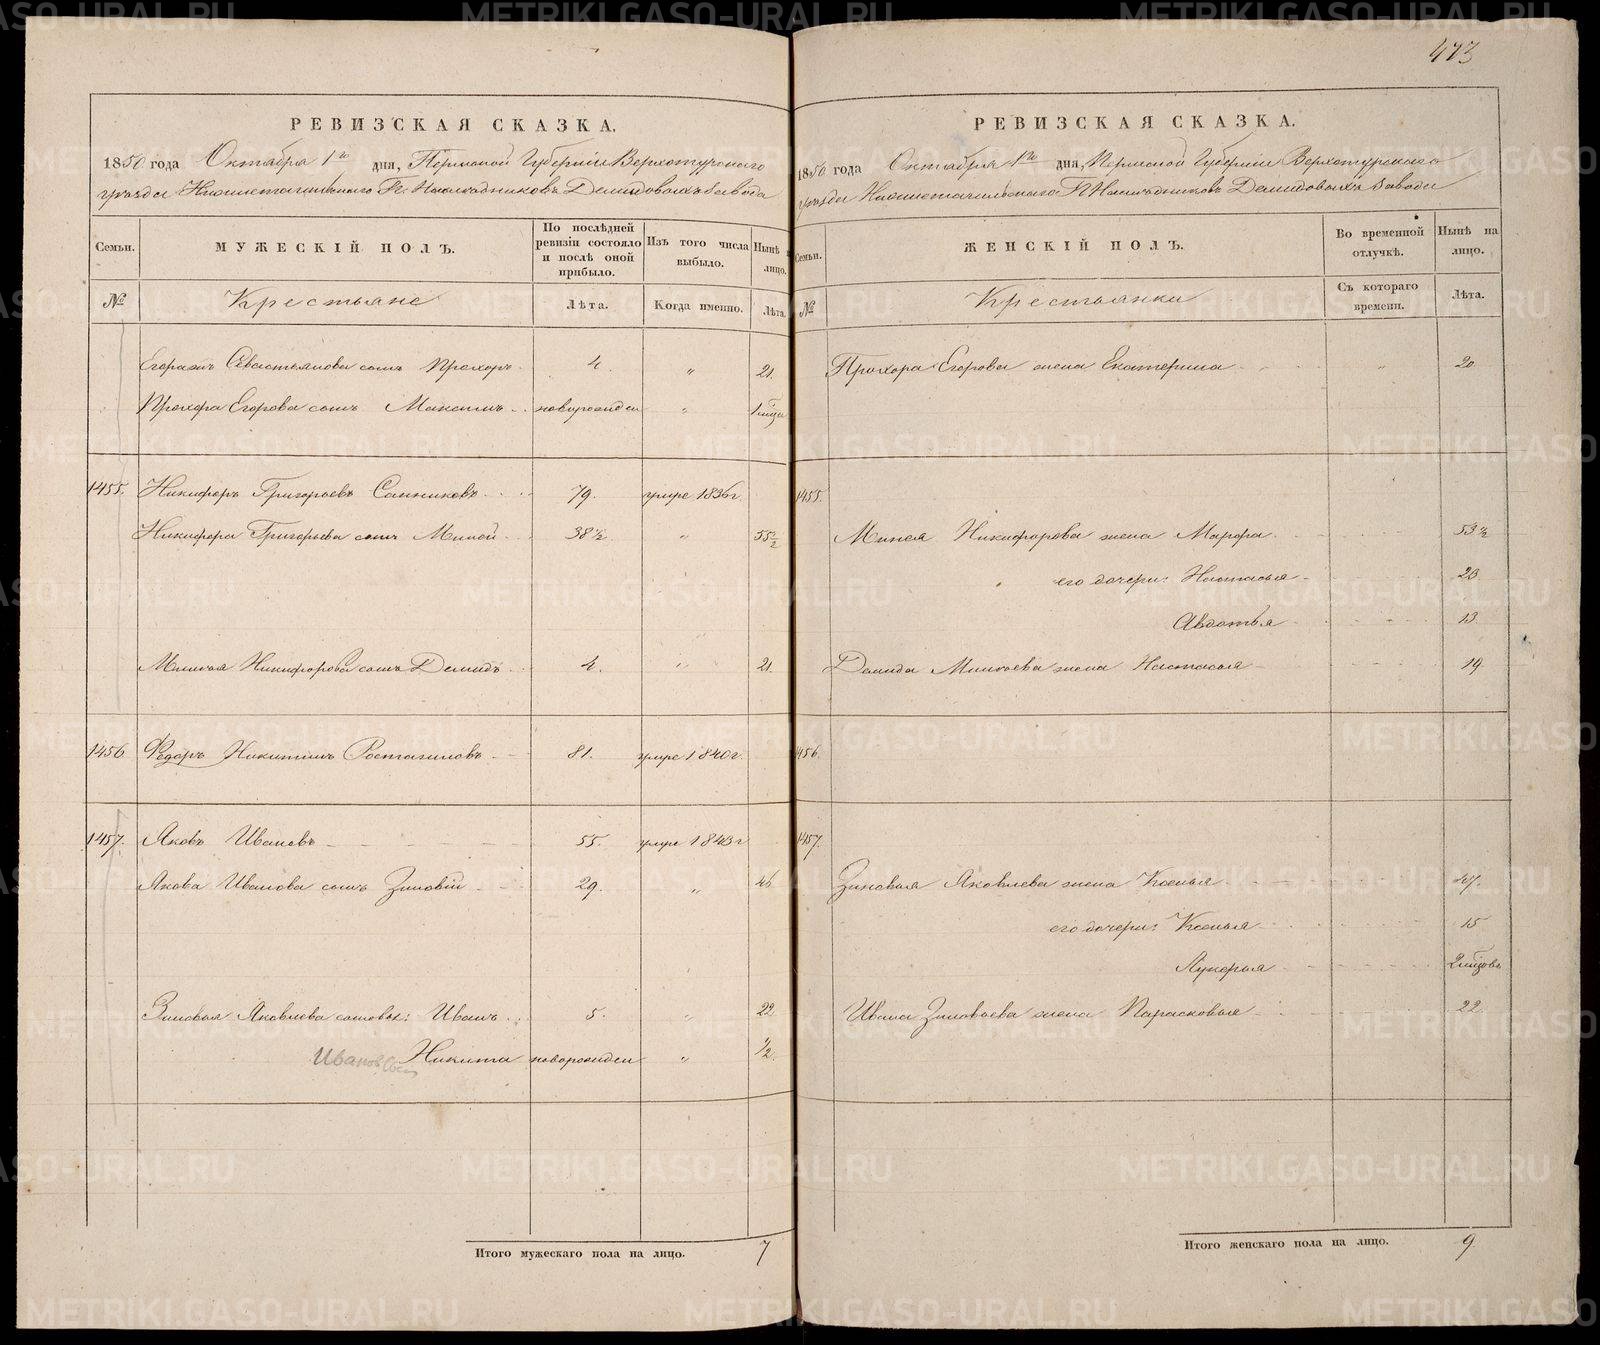 473
РЕВИЗСКАЯ СКАЗКА.
1850 года Октября 1го дня, Пермской Губерніи Верхотурскаго
уѣзда Нижнетагильскаго Гг. Наслѣдниковъ Демидовыхъ завода
Семьи. МУЖЕСКІЙ ПОЛЪ. По послѣдней ревизіи состояло и послѣ оной прибыло. Изъ того числа выбыло. Нынѣ на лицо.
№ Крестьяне Лѣта. Когда именно. Лѣта.
Севастьянова сынъ Прохоръ 4. „ 21.
Прохора Егорова сынъ Максимъ новорожден „ 1 мѣсц
1455. Никифоръ Григорьевъ Санниковъ 79. умре 1836 г
Никифора Григорьева сынъ Миней 38½ „ 55½
Минея Никифорова сынъ Демидъ 4. „ 21.
1456 Федоръ Никитинъ 81. умре 1840 г.
1457. Яковъ Ивановъ 55. умре 1843 г
Якова Иванова сынъ Зиновій 29. „ 46
Зиновья Яковлева сыновья: Иванъ 5. „ 22
Иванов Никита новорожден „ ½
Итого мужескаго пола на лицо. 7
РЕВИЗСКАЯ СКАЗКА.
1850 года Октября 1го дня, Пермской Губерніи Верхотурскаго
уѣзда Нижнетагильскаго Гг. Наслѣдниковъ Демидовыхъ завода
Семьи. ЖЕНСКІЙ ПОЛЪ. Во временной отлучкѣ. Нынѣ на лицо.
№ Крестьянки Съ котораго времени. Лѣта.
Прохора Егорова жена Екатерина „ 20
1455.
Минея Никифорова жена Марфа 53½
его дочери: Настасья 20
Авдотья 13
Демида Минеева жена Настасья 19
1456.
1457.
Зиновья Яковлева жена Ксенья 47.
его дочери: Ксенья 15
Лукерья 2 мѣсцовъ
Ивана Зиновьева жена Парасковья 22
Итого женскаго пола на лицо. 9
METRIKI.GASO-URAL.RU